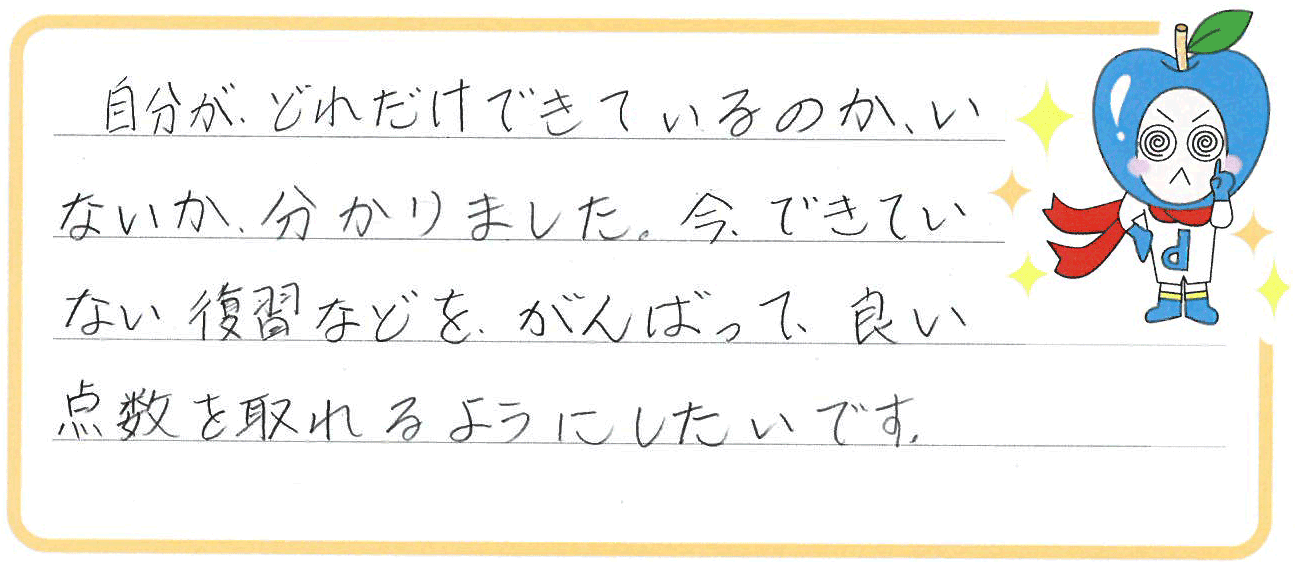 自分が、どれだけできているのか、い
ないか、分かりました。今、できてい
ない復習などを、がんばって、良い
点数を取れるようにしたいです。